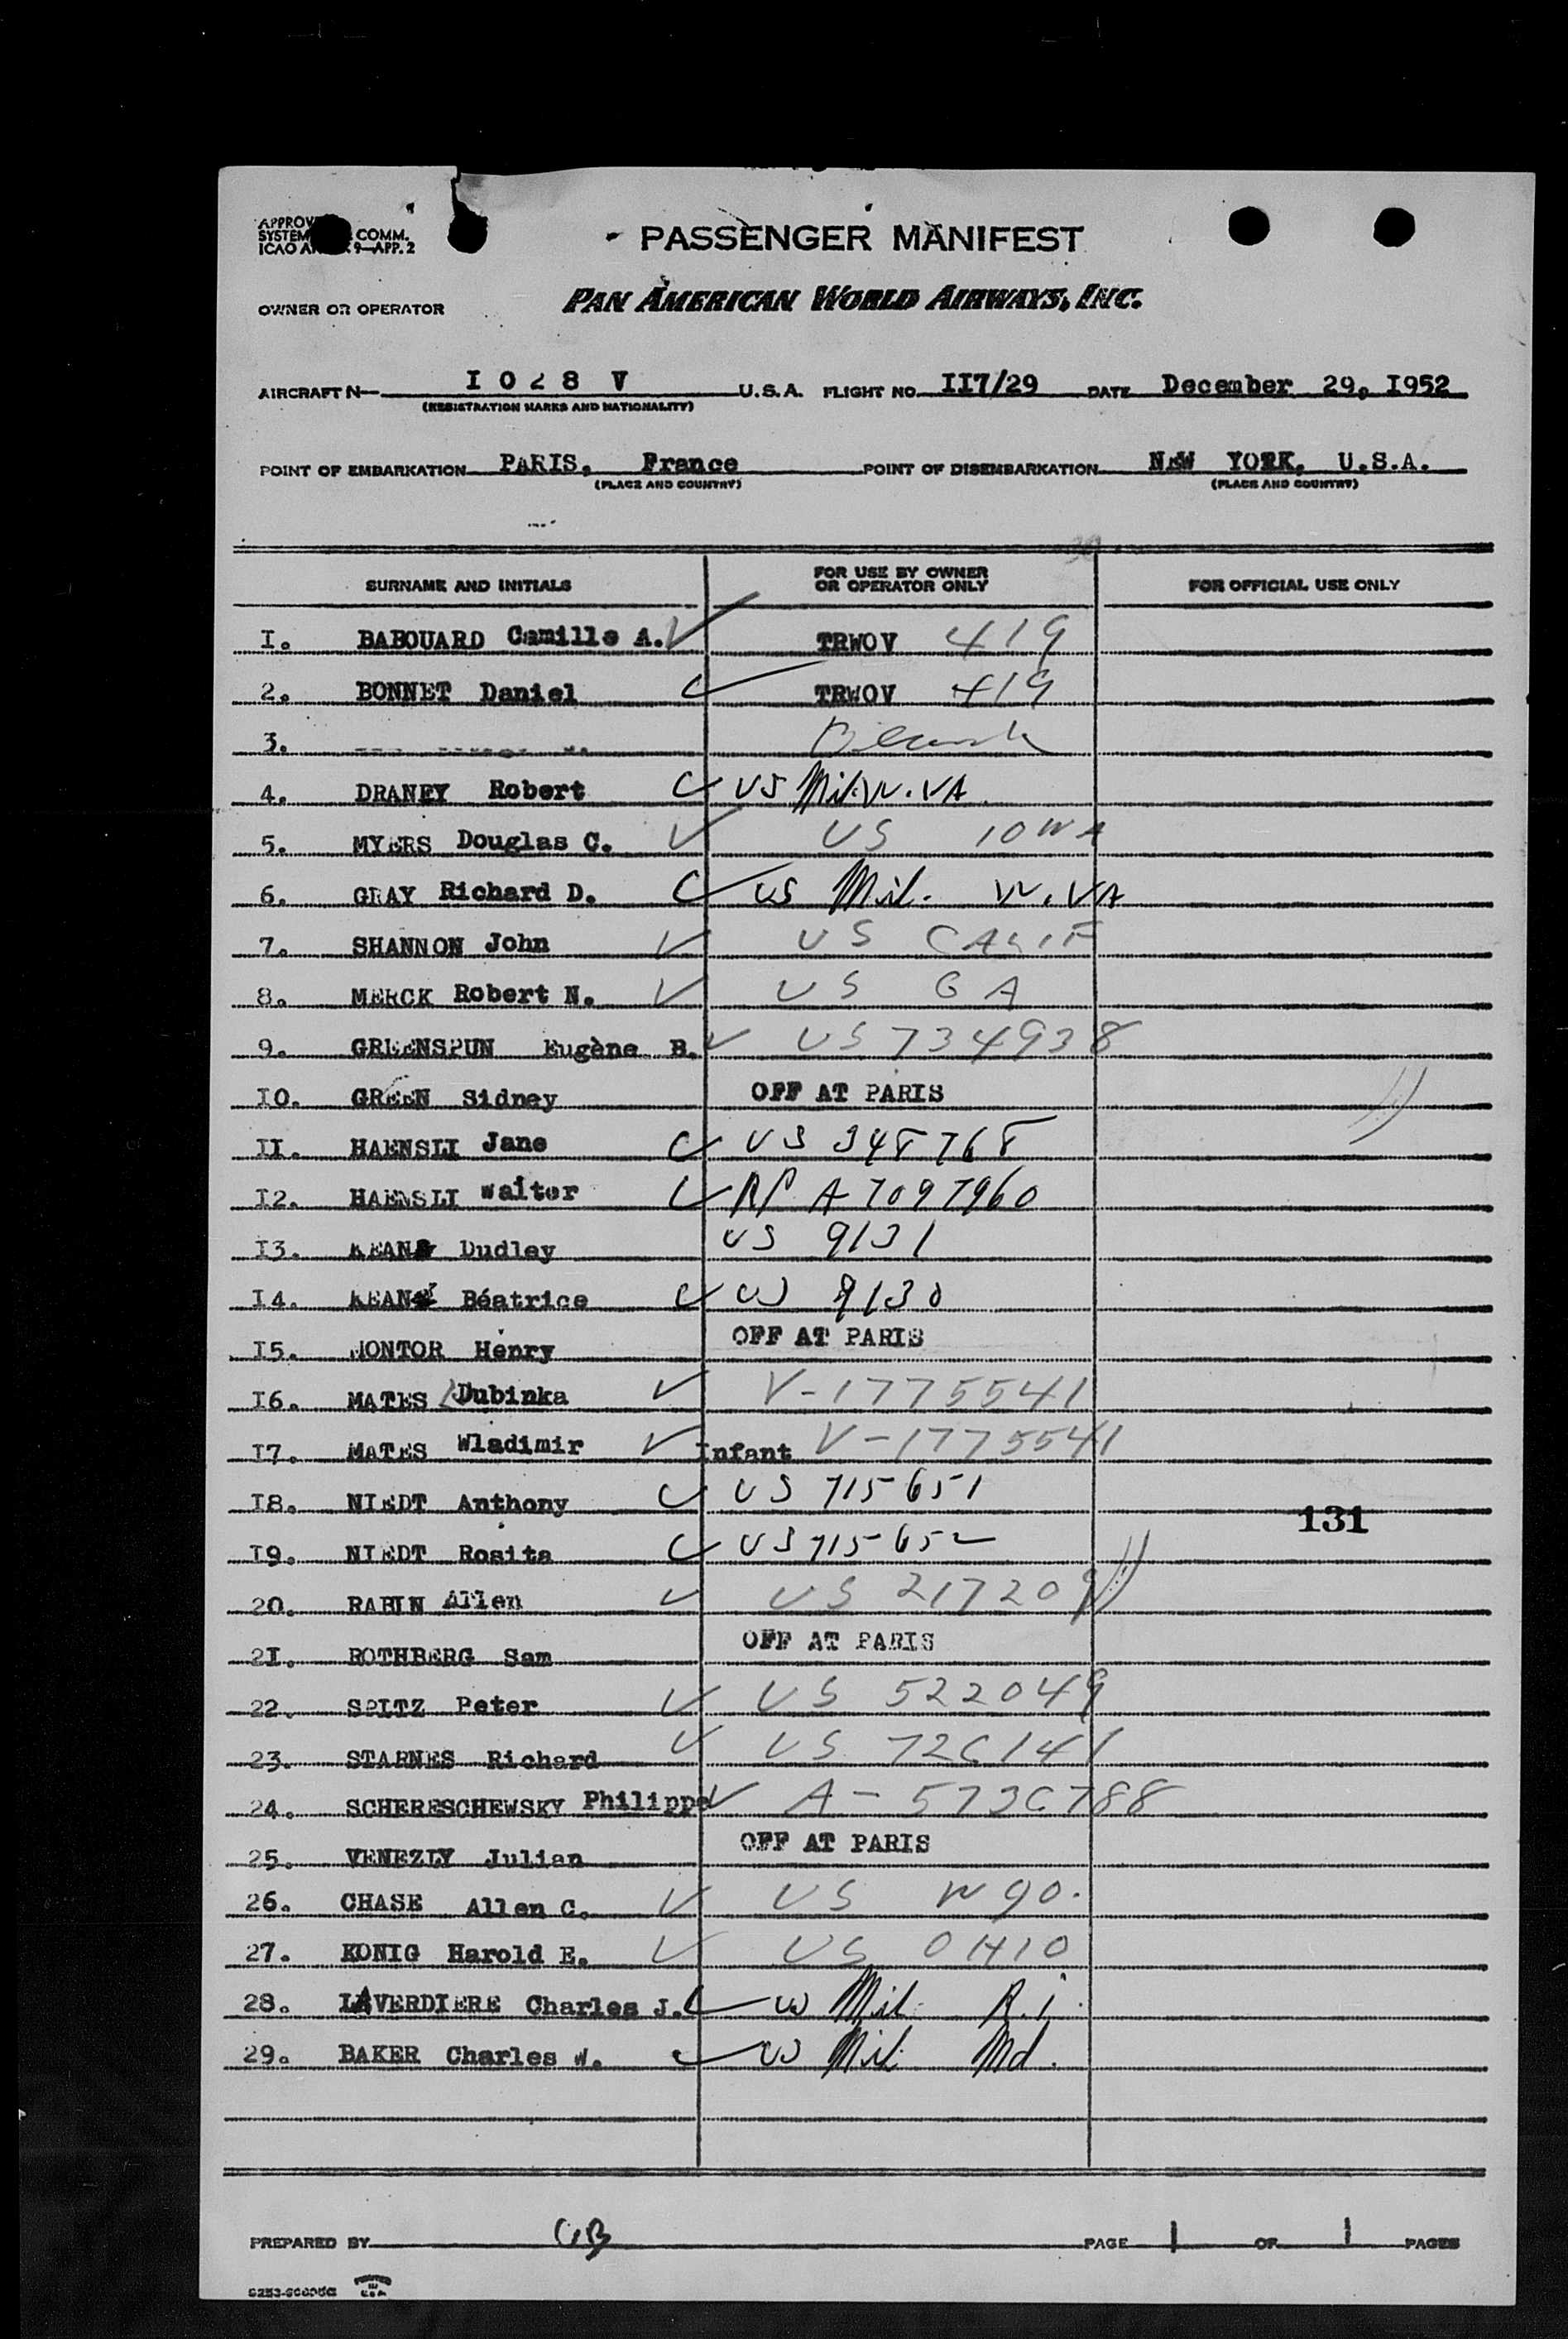 PASSENGER MANIFEST
COMM.
ICAO 9-APP. 2
OWNER OR OPERATOR PAN AMERICAN WORLD AIRWAYS, INC.
AIRCRAFT N- I 0 2 8 V U.S.A. FLIGHT NO. II7/29 DATE December 29, I952
(REGISTRATION MARKS AND NATIONALITY)
POINT OF EMBARKATION PARIS, France POINT OF DISEMBARKATION NEW YORK, U.S.A.
(PLACE AND COUNTRY) (PLACE AND COUNTRY)
SURNAME AND INITIALS FOR USE BY OWNER OR OPERATOR ONLY FOR OFFICIAL USE ONLY
I. BABOUARD Camille A. TRWOV 419
2. BONNET Daniel TRWOV 419
3.
4. DRANEY Robert US Mil. W. VA
5. MYERS Douglas C. US IOWA
6. GRAY Richard D. US Mil. W. VA
7. SHANNON John US CALIF
8. MERCK Robert N. US GA
9. GREENSPUN Eugène B. US 734938
I0. GREEN Sidney OFF AT PARIS
II. HAENSLI Jane US 348768
I2. HAENSLI Walter RP A 7097960
I3. Dudley US 9131
I4. Béatrice US 9130
I5. MONTOR Henry OFF AT PARIS
I6. MATES Dubinka V-1775541
I7. MATES Wladimir Infant V-1775541
I8. NIEDT Anthony US 715651
131
I9. NIEDT Rosita US 715652
20. RABIN Allen US 217209
2I. ROTHBERG Sam OFF AT PARIS
22. SPITZ Peter US 522049
23. STARNES Richard US 726141
24. SCHERESCHEWSKY Philippe A-5736788
25. VENEZLY Julian OFF AT PARIS
26. CHASE Allen C. US
27. KONIG Harold E. US OHIO
28. LAVERDIERE Charles J. US Mil R.I.
29. BAKER Charles W. US Mil Md.
PREPARED BY GB PAGE 1 OF 1 PAGES
PRINTED IN U.S.A.